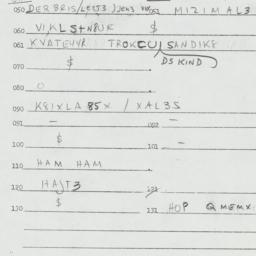 050 DERBRIS/LEIT3/JEN3 MIZIMAL3
060 VIKLS+N8UK $
061 KVATEHYR TROKCUISANDIK8
$ DS KIND
070
080 O
090 K8IXLA 85X / XAL3S
091 — 092 —
100 $ 101 —
110 HAM HAM
120 HAJT3 121
130 $ 131 HOP QMEMX